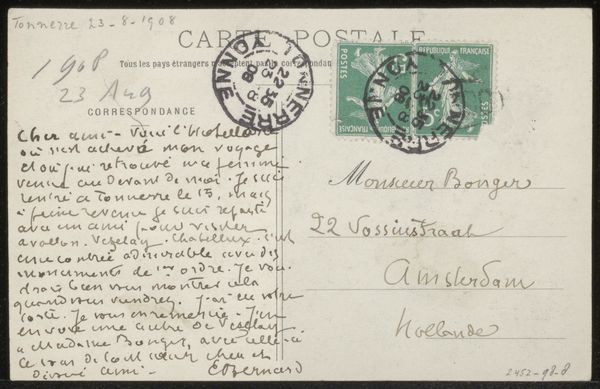 Tonnerre 23-8-1908
CARTE POSTALE
Tous les pays étrangers n'acceptent pas la correspondance
1908
23 Aug
CORRESPONDANCE
TONNERRE YONNE
22 35
23 8
08
RÉPUBLIQUE FRANÇAISE
POSTES
Cher ami - Voici l'
où s'est achevé mon voyage
et où j'ai retrouvé ma femme
venue au devant de moi. Je suis
rentré à Tonnerre le 15, mais
à peine revenu je suis reparti
avec un ami pour visiter
Avallon. Vezelay. Chatellux. c'est
une contrée admirable avec des
monuments de 1er ordre. Je vou-
drais bien vous montrer cela
quand vous viendrez. J'ai eu votre
carte. Je vous en remercie. J'en
envoie une autre de Vezelay
à Madame Bonger, avec celle-ci
de tout cœur cher et
ami.
E Bernard
Monsieur Bonger
22 Vossiusstraat
Amsterdam
Hollande
2452-98-8